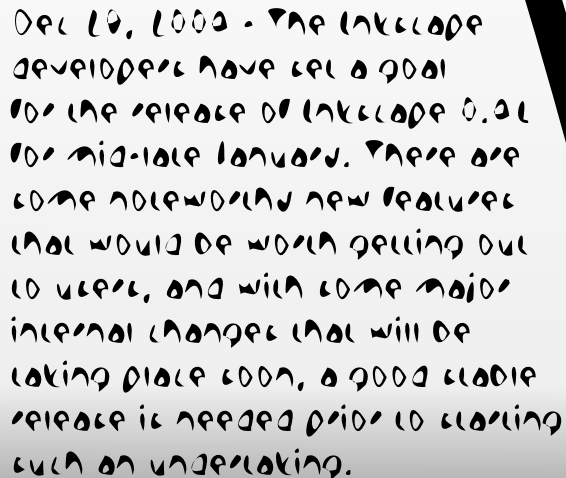 Dec 2004 - The Inkscape
developers have set a goal
for the release of Inkscape 0.41
for mid-late January. There are
some noteworthy new features
that would be worth getting out
to users, and with some major
internal changes that will be
taking place soon, a good stable
release is needed prior to starting
such an undertaking.